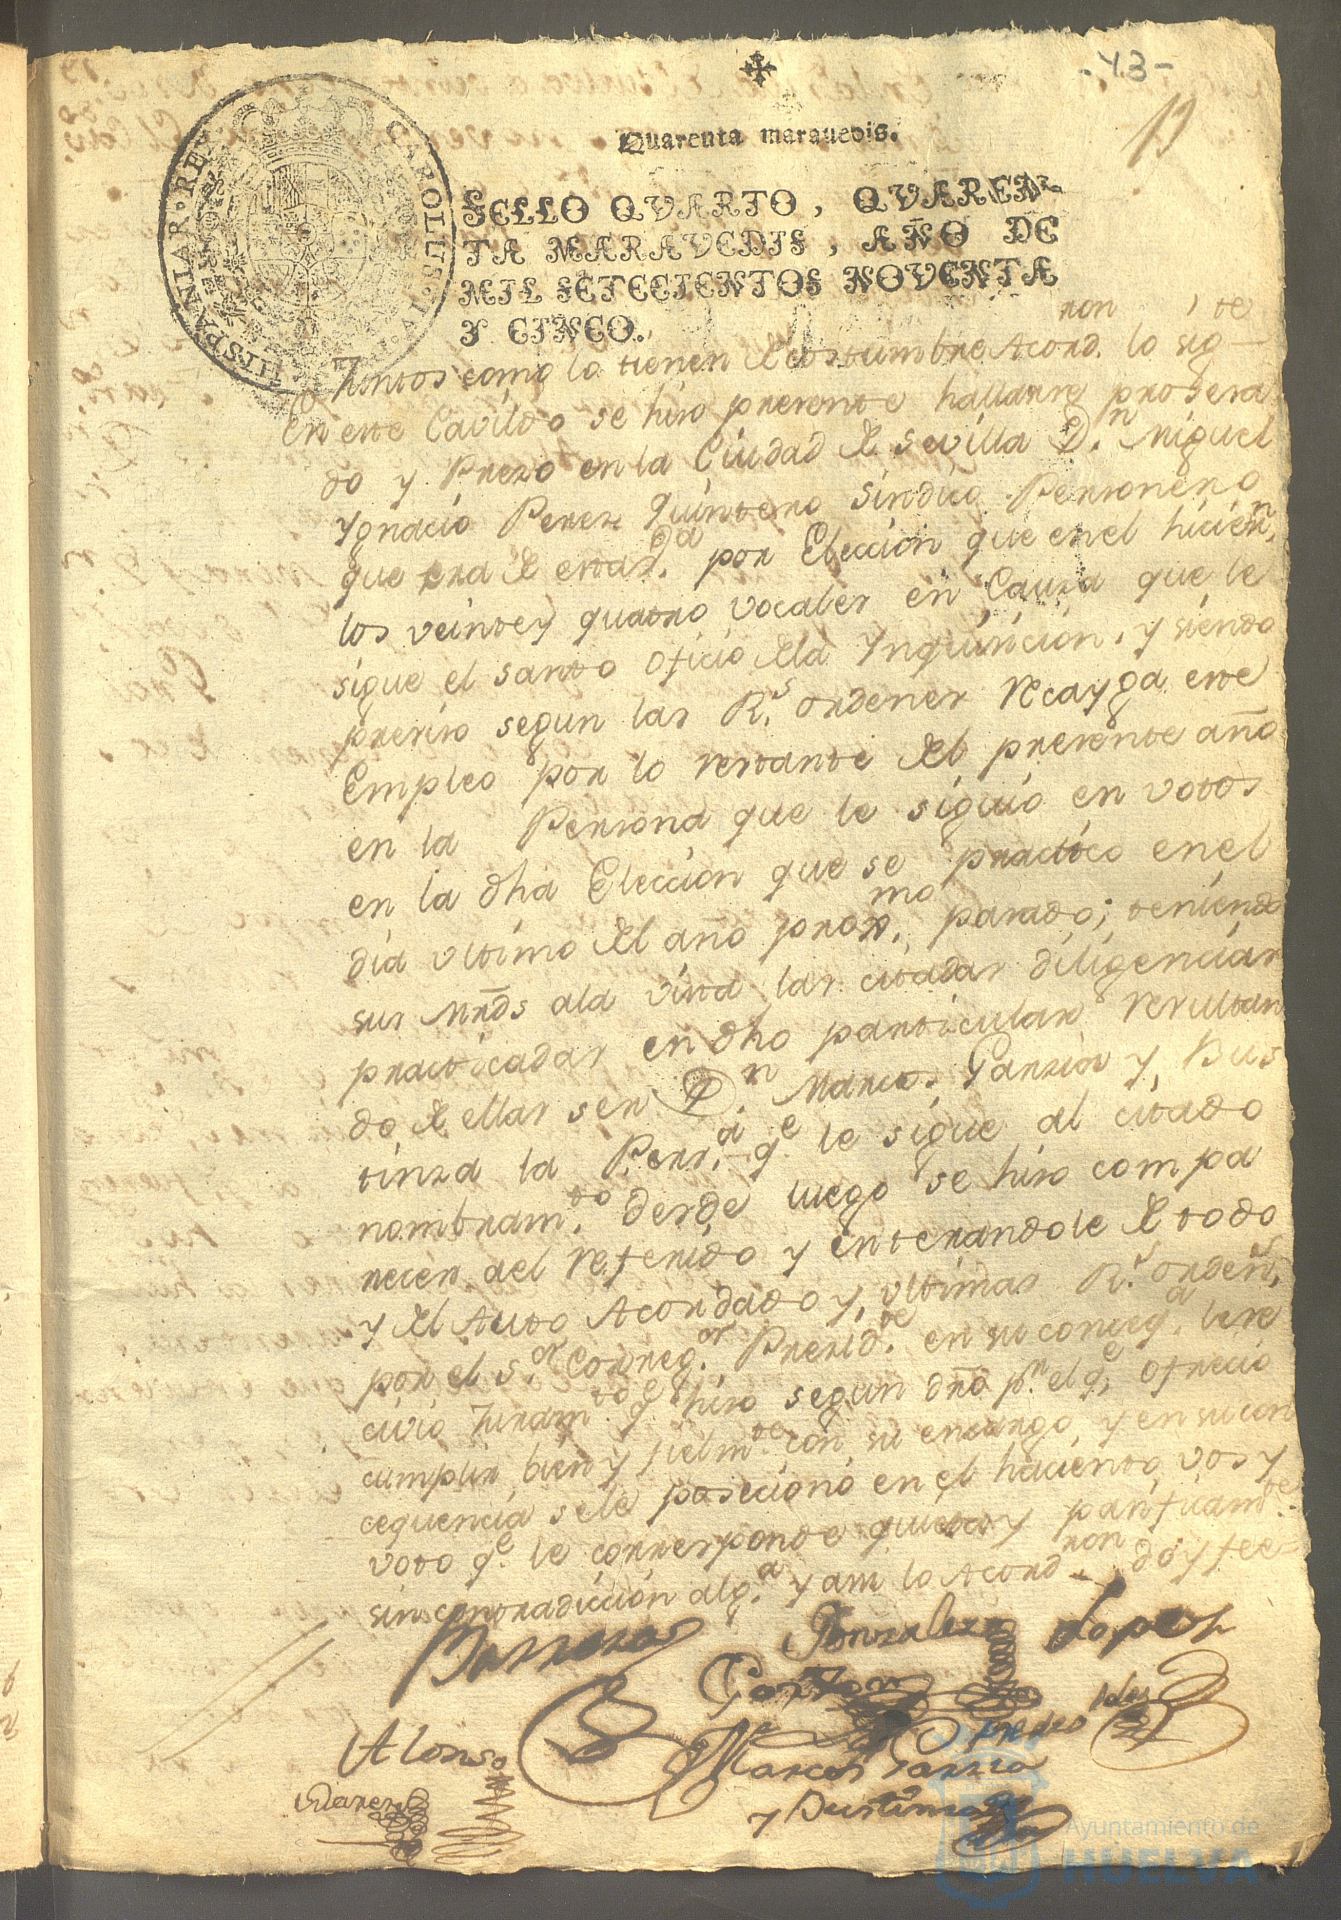 -43-
13
Quarenta marauedis.
CAROLUS·IV·
HISPANIAR·REX
SELLO QVARTO, QVAREN-
TA MARAVEDIS, AÑO DE
MIL SETECIENTOS NOVENTA
Y CINCO.
Juntos como lo tienen de costumbre Acord.ron lo sig.te
En este Cavildo se hiso presente hallarse prosesa
do y Preso en la Ciudad de Sevilla D.n Miguel
Ygnacio Perez Quintero Sindico Personero
que era de esta v.a por Eleccion que en el hicier.n
los veinte y quatro vocales en Causa que le
sigue el santo oficio de la Ynquisicion, y siendo
preciso segun las R.s ordenes recayga este
Empleo por lo restante del presente año
en la Persona que le siguio en votos
en la dha Eleccion que se practico en el
dia ultimo del año prox.mo pasado; teniendo
sus Mrds ala vista las citadas diligencias
practicadas en dho particular resultan
do de ellas ser D.n Marcos Garzia y Bus
tinza la Pers.a q.e le sigue al citado
nombram.to desde luego se hiso compa
recer al referido y enterandole de todo
y del Auto Acordado y ultimas R.s orden.s
por el s.or Correg.or Presid.te en su conseq.a le re
civio Juram.to q.e hiso segun dro p.r el q.e ofrecio
cumplir bien y fielm.te con su encargo, y en su con
cequencia se le posecionó en el haciento, vos y
voto q.e le corresponde quieta y pasificam.te
sin contradiccion alg.a y asi lo Acord.ron doy fee=
Barreras Gonzalez Lopez
Alonso
Suarez
Marcos Garzia
y Bustinza
Ayuntamiento de
HUELVA